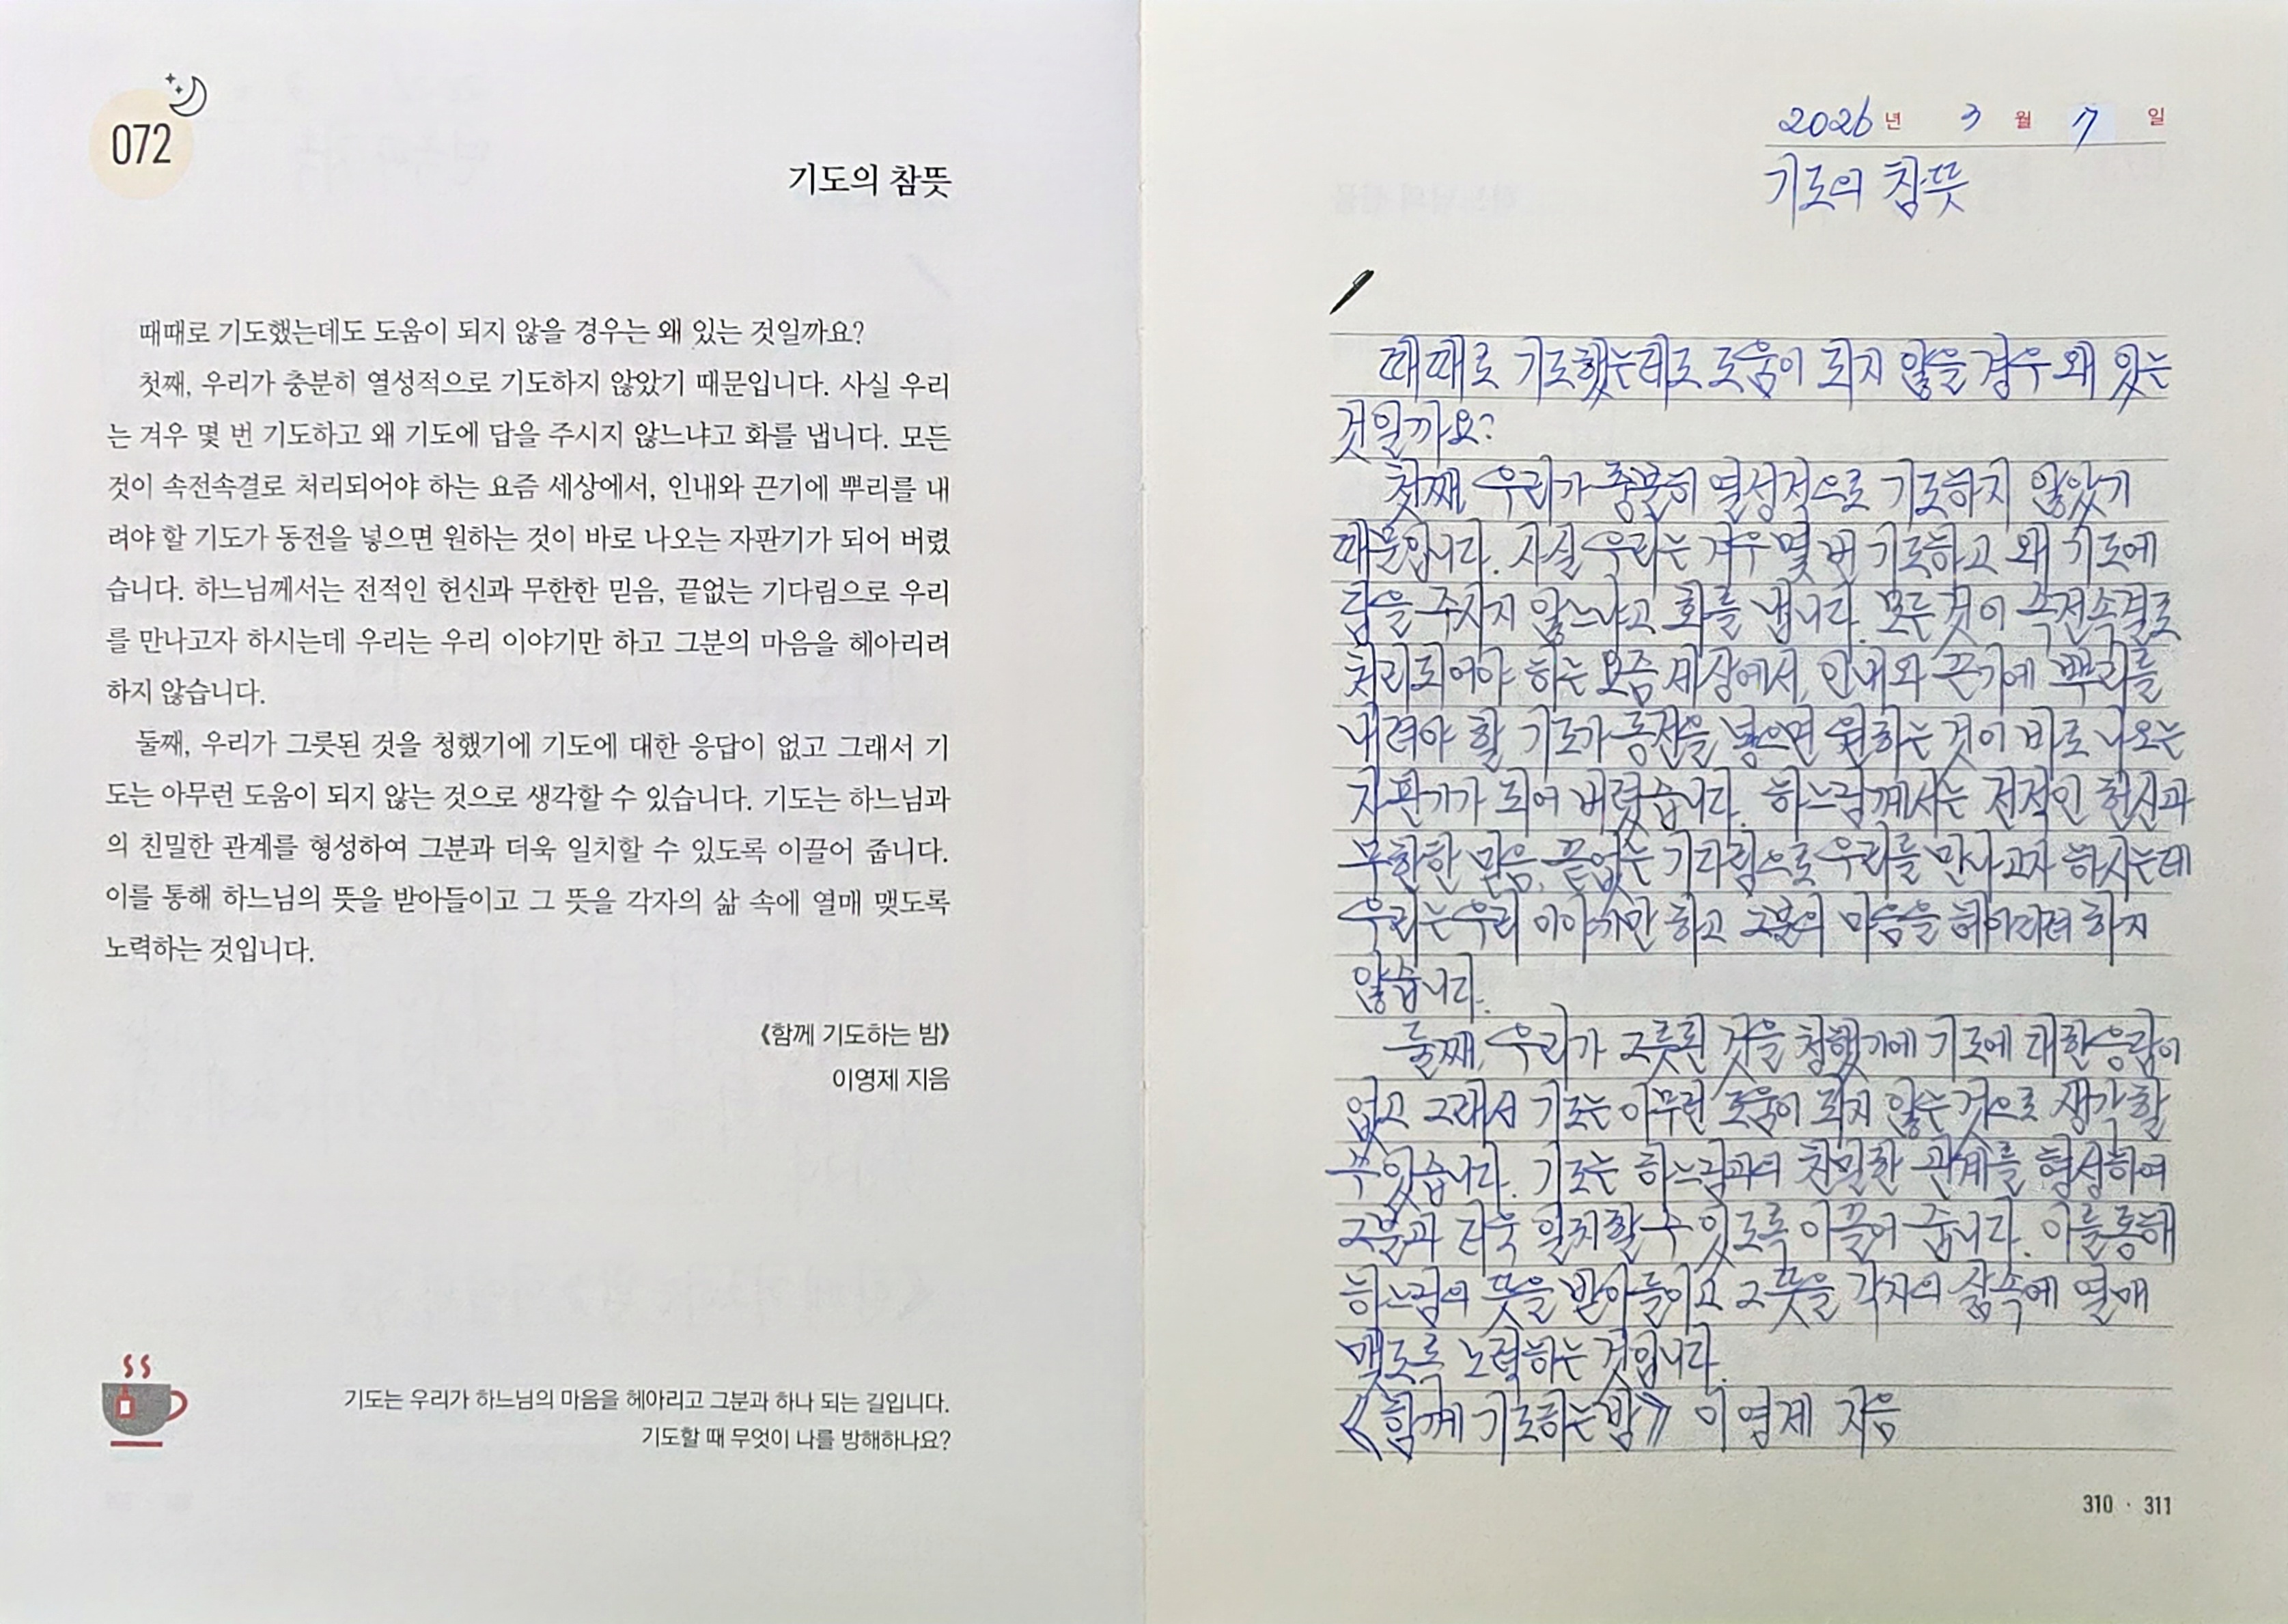 072
기도의 참뜻
때때로 기도했는데도 도움이 되지 않을 경우는 왜 있는 것일까요?
첫째, 우리가 충분히 열성적으로 기도하지 않았기 때문입니다. 사실 우리
는 겨우 몇 번 기도하고 왜 기도에 답을 주시지 않느냐고 화를 냅니다. 모든
것이 속전속결로 처리되어야 하는 요즘 세상에서, 인내와 끈기에 뿌리를 내
려야 할 기도가 동전을 넣으면 원하는 것이 바로 나오는 자판기가 되어 버렸
습니다. 하느님께서는 전적인 헌신과 무한한 믿음, 끝없는 기다림으로 우리
를 만나고자 하시는데 우리는 우리 이야기만 하고 그분의 마음을 헤아리려
하지 않습니다.
둘째, 우리가 그릇된 것을 청했기에 기도에 대한 응답이 없고 그래서 기
도는 아무런 도움이 되지 않는 것으로 생각할 수 있습니다. 기도는 하느님과
의 친밀한 관계를 형성하여 그분과 더욱 일치할 수 있도록 이끌어 줍니다.
이를 통해 하느님의 뜻을 받아들이고 그 뜻을 각자의 삶 속에 열매 맺도록
노력하는 것입니다.
《함께 기도하는 밤》
이영제 지음
기도는 우리가 하느님의 마음을 헤아리고 그분과 하나 되는 길입니다.
기도할 때 무엇이 나를 방해하나요?
2026년 3월 7일
기도의 참뜻
때때로 기도했는데도 도움이 되지 않을 경우 왜 있는
것일까요?
첫째, 우리가 충분히 열성적으로 기도하지 않았기
때문입니다. 사실 우리는 겨우 몇 번 기도하고 왜 기도에
답을 주시지 않느냐고 화를 냅니다. 모든 것이 속전속결로
처리되어야 하는 요즘 세상에서, 인내와 끈기에 뿌리를
내려야 할 기도가 동전을 넣으면 원하는 것이 바로 나오는
자판기가 되어 버렸습니다. 하느님께서는 전적인 헌신과
무한한 믿음, 끝없는 기다림으로 우리를 만나고자 하시는데
우리는 우리 이야기만 하고 그분의 마음을 헤아리려 하지
않습니다.
둘째, 우리가 그릇된 것을 청했기에 기도에 대한 응답이
없고 그래서 기도는 아무런 도움이 되지 않는 것으로 생각할
수 있습니다. 기도는 하느님과의 친밀한 관계를 형성하여
그분과 더욱 일치할 수 있도록 이끌어 줍니다. 이를 통해
하느님의 뜻을 받아들이고 그 뜻을 각자의 삶 속에 열매
맺도록 노력하는 것입니다.
《함께 기도하는 밤》 이영제 지음
310 · 311